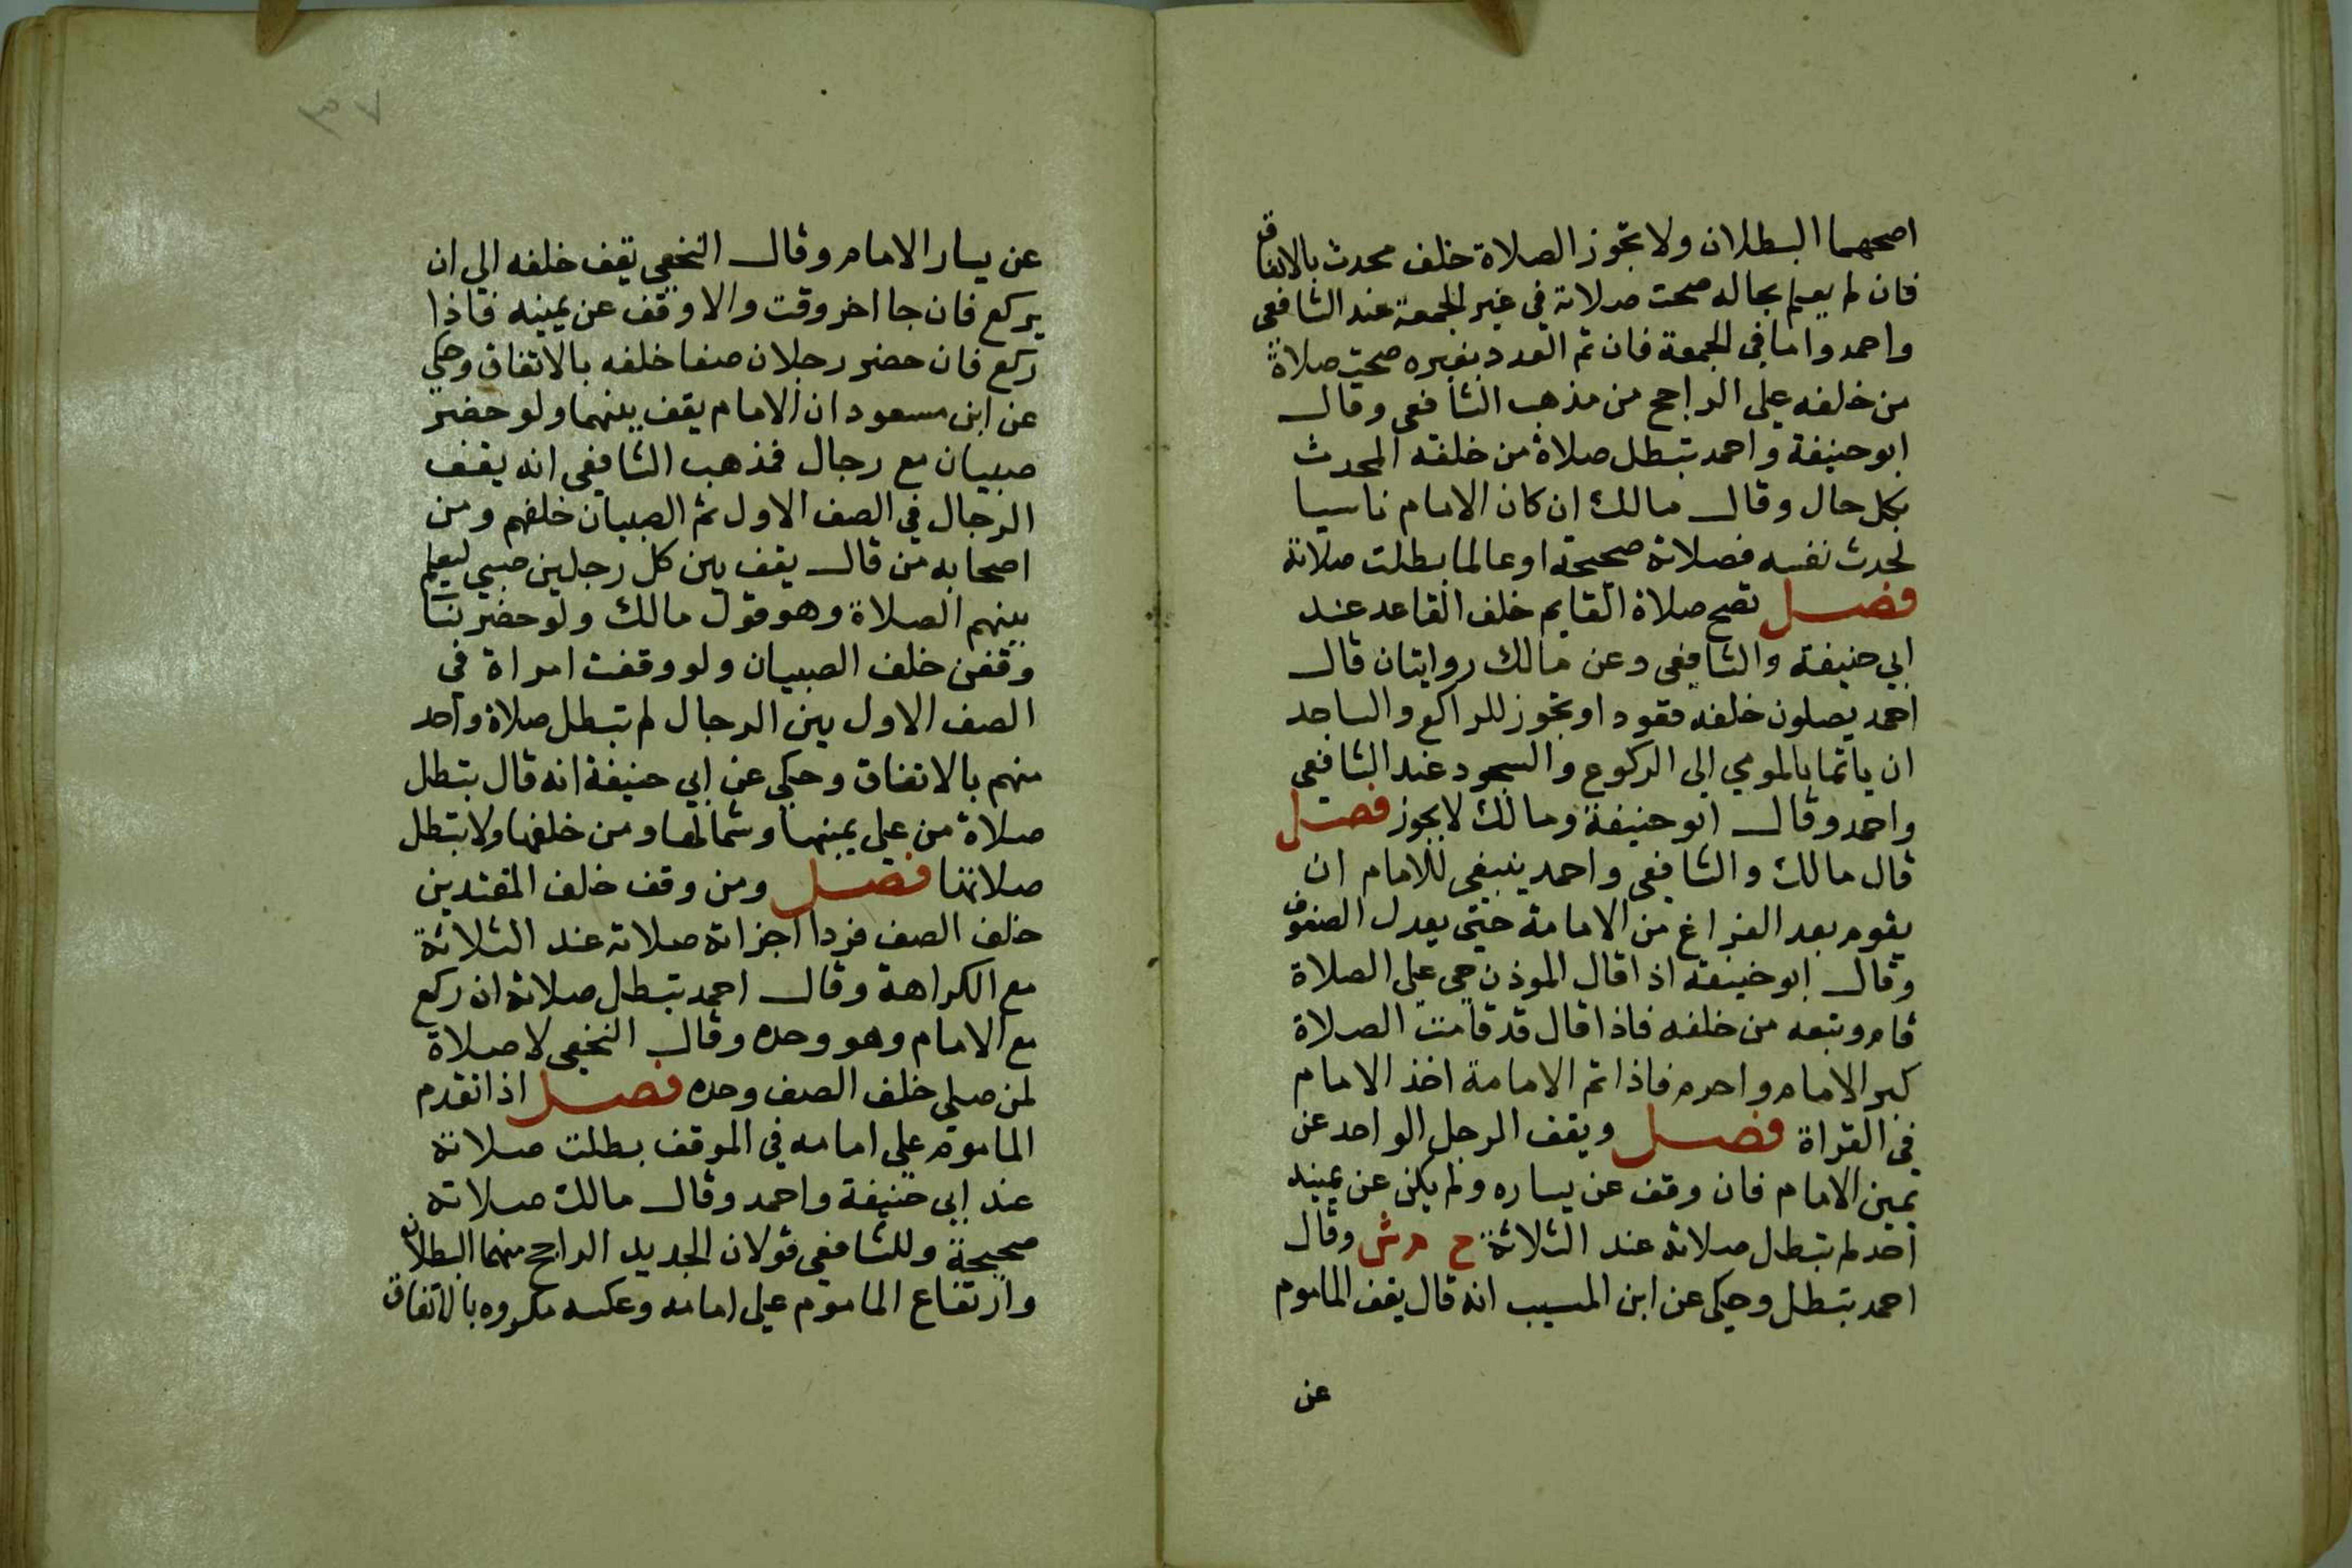 اصحهما البطلان ولا تجوز الصلاة خلف محدث بالاتفاق
فان لم يعلم بحاله صحت صلاته في غير الجمعة عند الشافعي
واحمد واما في الجمعة فان تم العدد بغيره صحت صلاة
من خلفه على الراجح من مذهب الشافعي وقال
ابو حنيفة واحمد تبطل صلاة من خلفه المحدث
بكل حال وقال مالك ان كان الامام ناسيا
لحدث نفسه فصلاته صحيحة او عالما بطلت صلاته
فصل تصح صلاة القايم خلف القاعد عند
ابي حنيفة والشافعي وعن مالك روايتان قال
احمد يصلون خلفه قعودا وتجوز للراكع والساجد
ان ياتما بالمومي الى الركوع والسجود عند الشافعي
واحمد وقال ابو حنيفة ومالك لا يجوز فصل
قال مالك والشافعي واحمد ينبغي للامام ان
يقوم بعد الفراغ من الاقامة حتى يعدل الصفوف
وقال ابو حنيفة اذا قال الموذن حي على الصلاة
قام وتبعه من خلفه فاذا قال قد قامت الصلاة
كبر الامام واحرم فاذا تم الامامة اخذ الامام
في القراة فصل ويقف الرجل الواحد عن
يمين الامام فان وقف عن يساره ولم يكن عن يمينه
احد لم تبطل صلاته عند الثلاثة ح م ش وقال
احمد تبطل وحكي عن ابن المسيب انه قال يقف الماموم
عن
٣٧
عن يسار الامام وقال النخعي يقف خلفه الي ان
يركع فان جا اخر وقت والا وقف عن يمينه فاذا
ركع فان حضر رجلان صفا خلفه بالاتفاق وحكي
عن ابن مسعود ان الامام يقف بينهما ولو حضر
صبيان مع رجال فمذهب الشافعي انه يقف
الرجال في الصف الاول ثم الصبيان خلفهم ومن
اصحابه من قال يقف بين كل رجلين صبي ليعلم
بينهم الصلاة وهو قول مالك ولو حضر نسا
وقفن خلف الصبيان ولو وقفت امراة في
الصف الاول بين الرجال لم تبطل صلاة واحد
منهم بالاتفاق وحكي عن ابي حنيفة انه قال بتطل
صلاة من علي يمينها وشمالها ومن خلفها ولا بتطل
صلاتها فصل ومن وقف خلف المقتدين
خلف الصف فردا اجزاته صلاته عند الثلاثة
مع الكراهة وقال احمد تبطل صلاته ان ركع
مع الامام وهو وحده وقال النخعي لا صلاة
لمن صلي خلف الصف وحده فصل اذا تقدم
الماموم على امامه في الموقف بطلت صلاته
عند ابي حنيفة واحمد وقال مالك صلاته
صحيحة وللشافعي قولان الجديد الراجح منهما البطلان
وارتفاع الماموم علي امامه وعكسه مكروه بالاتفاق